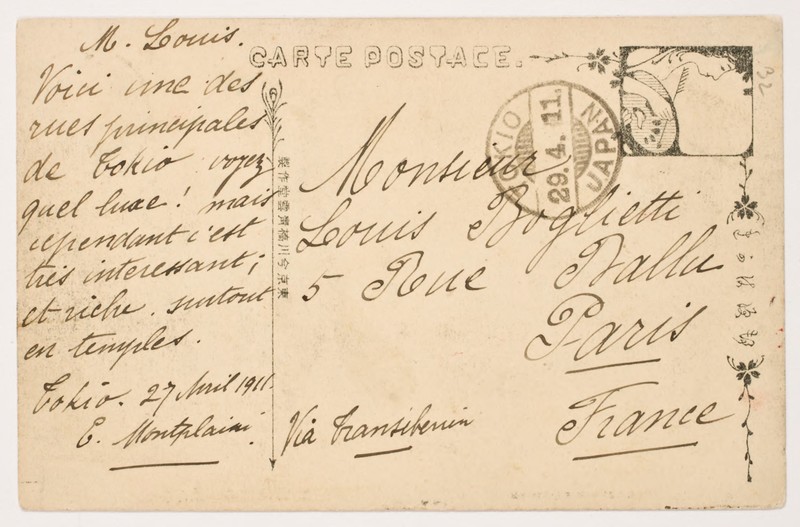 M. Louis.
CARTE POSTALE.
32
Voici une des
rues principales
de Tokio voyez
quel luxe! mais
cependant c'est
très interessant;
et riche. surtout
en temples.
Tokio. 27 Avril 1911.
E.
TOKIO
29.4.11.
JAPAN
Monsieur
Louis Boglietti
5 Rue Ballu
Paris
France
Via Transiberien
東京今川橋